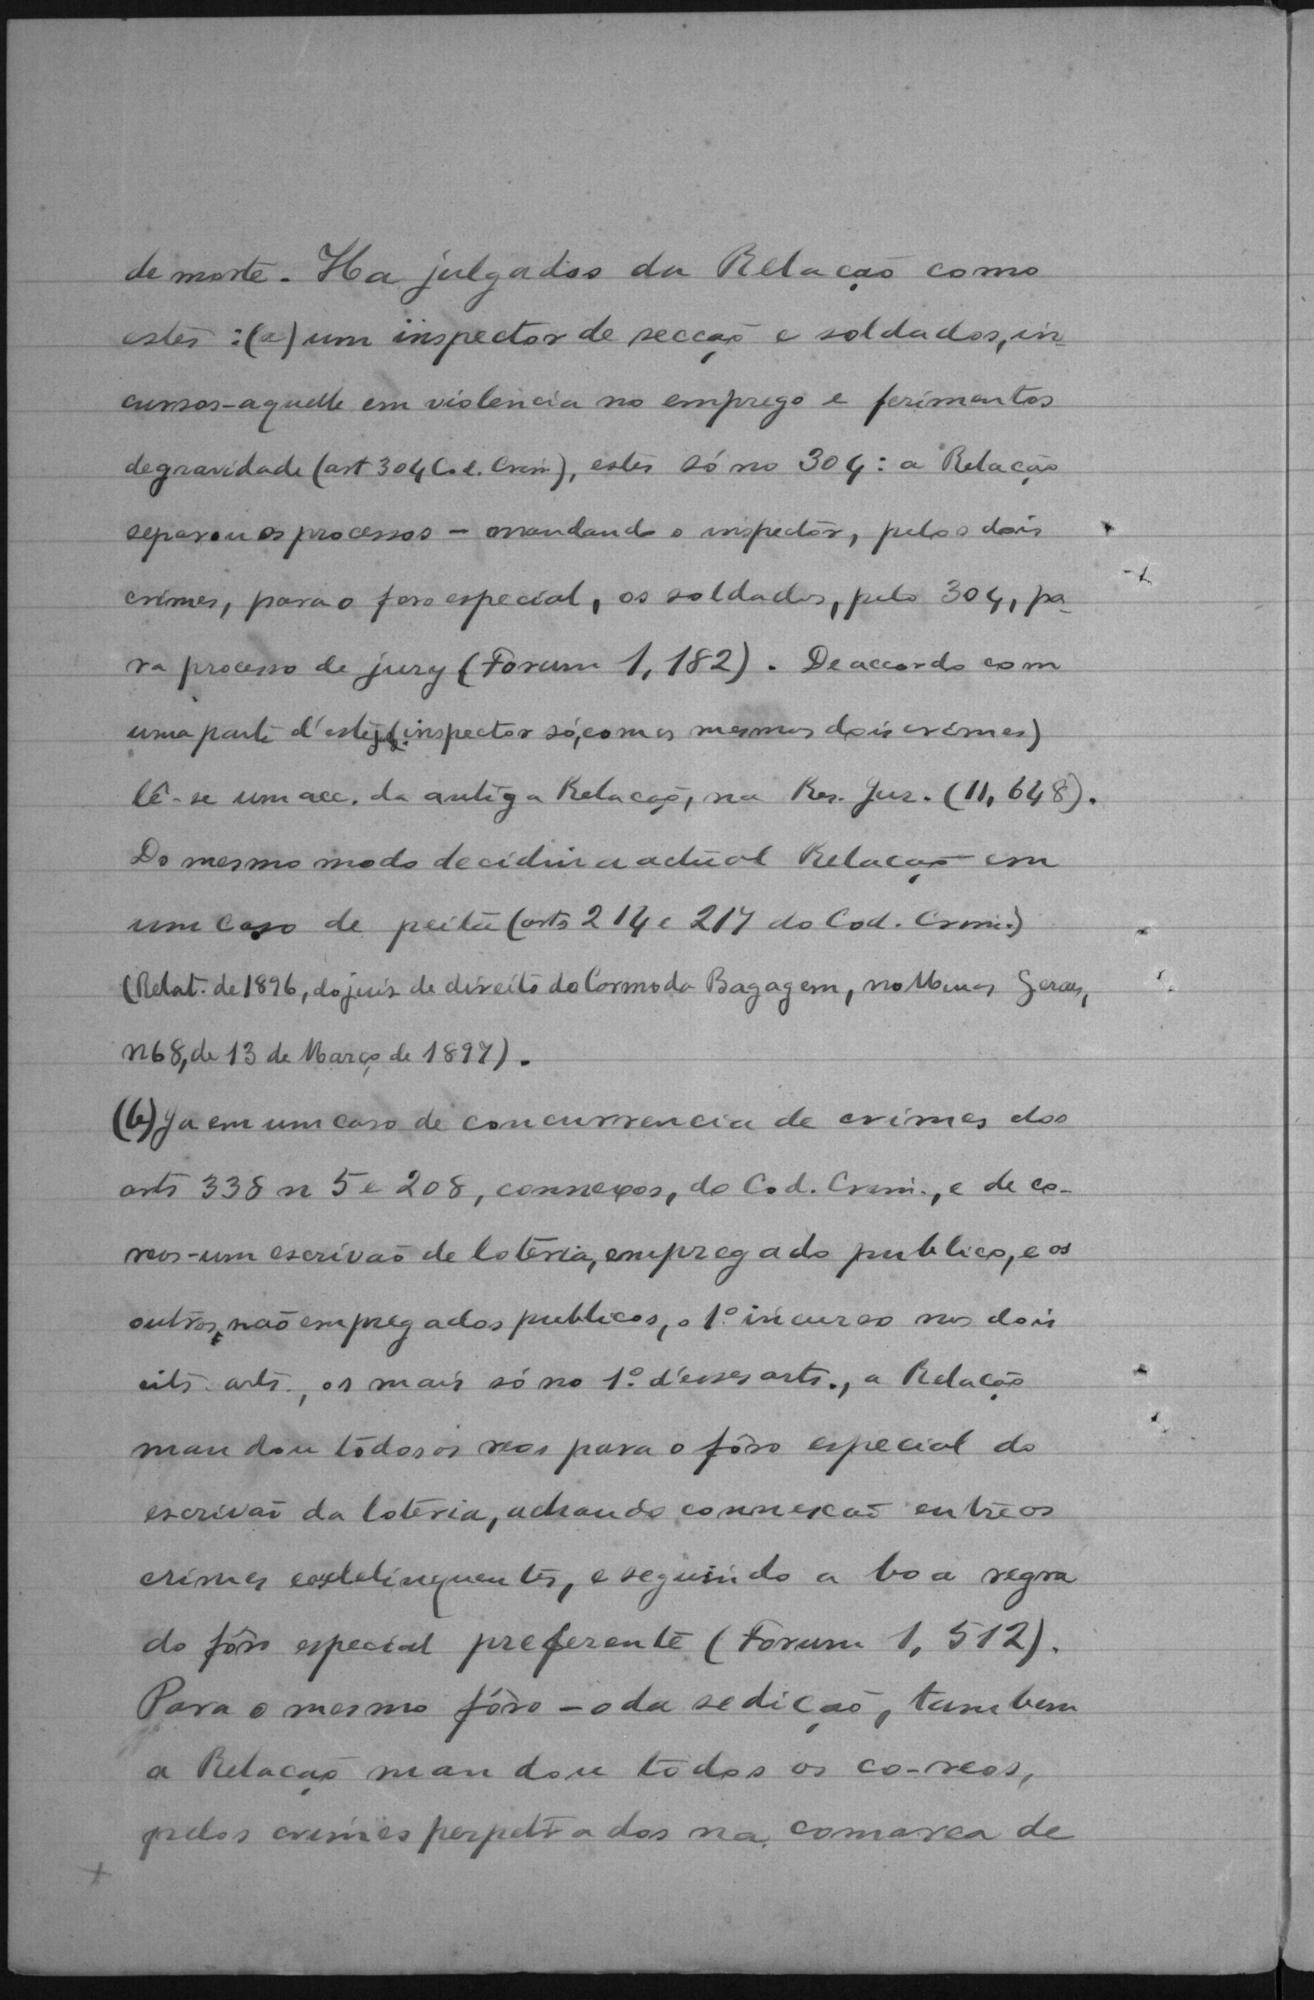 de morte. Ha julgados da Relação como
estes: (a) um inspector de secção e soldados, in-
cursos - aquelle em violencia no emprego e ferimentos
de gravidade (art 304 Cod. Crim), estes só no 304: a Relação
separou os processos - mandando o inspector, pelos dois
crimes, para o foro especial, os soldados, pelo 304, pa-
ra processo de jury (Forum 1, 182). De accordo com
uma parte d'estes (inspector só, com os mesmos dois crimes)
lê-se um acc. da antiga Relação, na Rev. Jur. (11, 648).
Do mesmo modo decidiu a actual Relação em
um caso de peita (arts 214 e 217 do Cod. Crim.)
(Relat. de 1896, do juis de direito da Comarca da Bagagem, no Minas Geraes,
n 68, de 13 de Março de 1897).
(b) Ja em um caso de concurrencia de crimes dos
arts 338 n 5 e 208, connexos, do Cod. Crim., e de co-
reos - um escrivão de loteria, empregado publico, e os
outros, não empregados publicos, o 1º incurso nos dois
cits. arts., os mais só no 1º d'esses arts., a Relação
mandou todos os reos para o fôro especial do
escrivão da loteria, achando connexão entre os
crimes e os delinquentes, e seguindo a boa regra
do fôro especial preferente (Forum 1, 512).
Para o mesmo fôro - o da sedição, tambem
a Relação mandou todos os co-reos,
pelos crimes perpetrados na comarca de